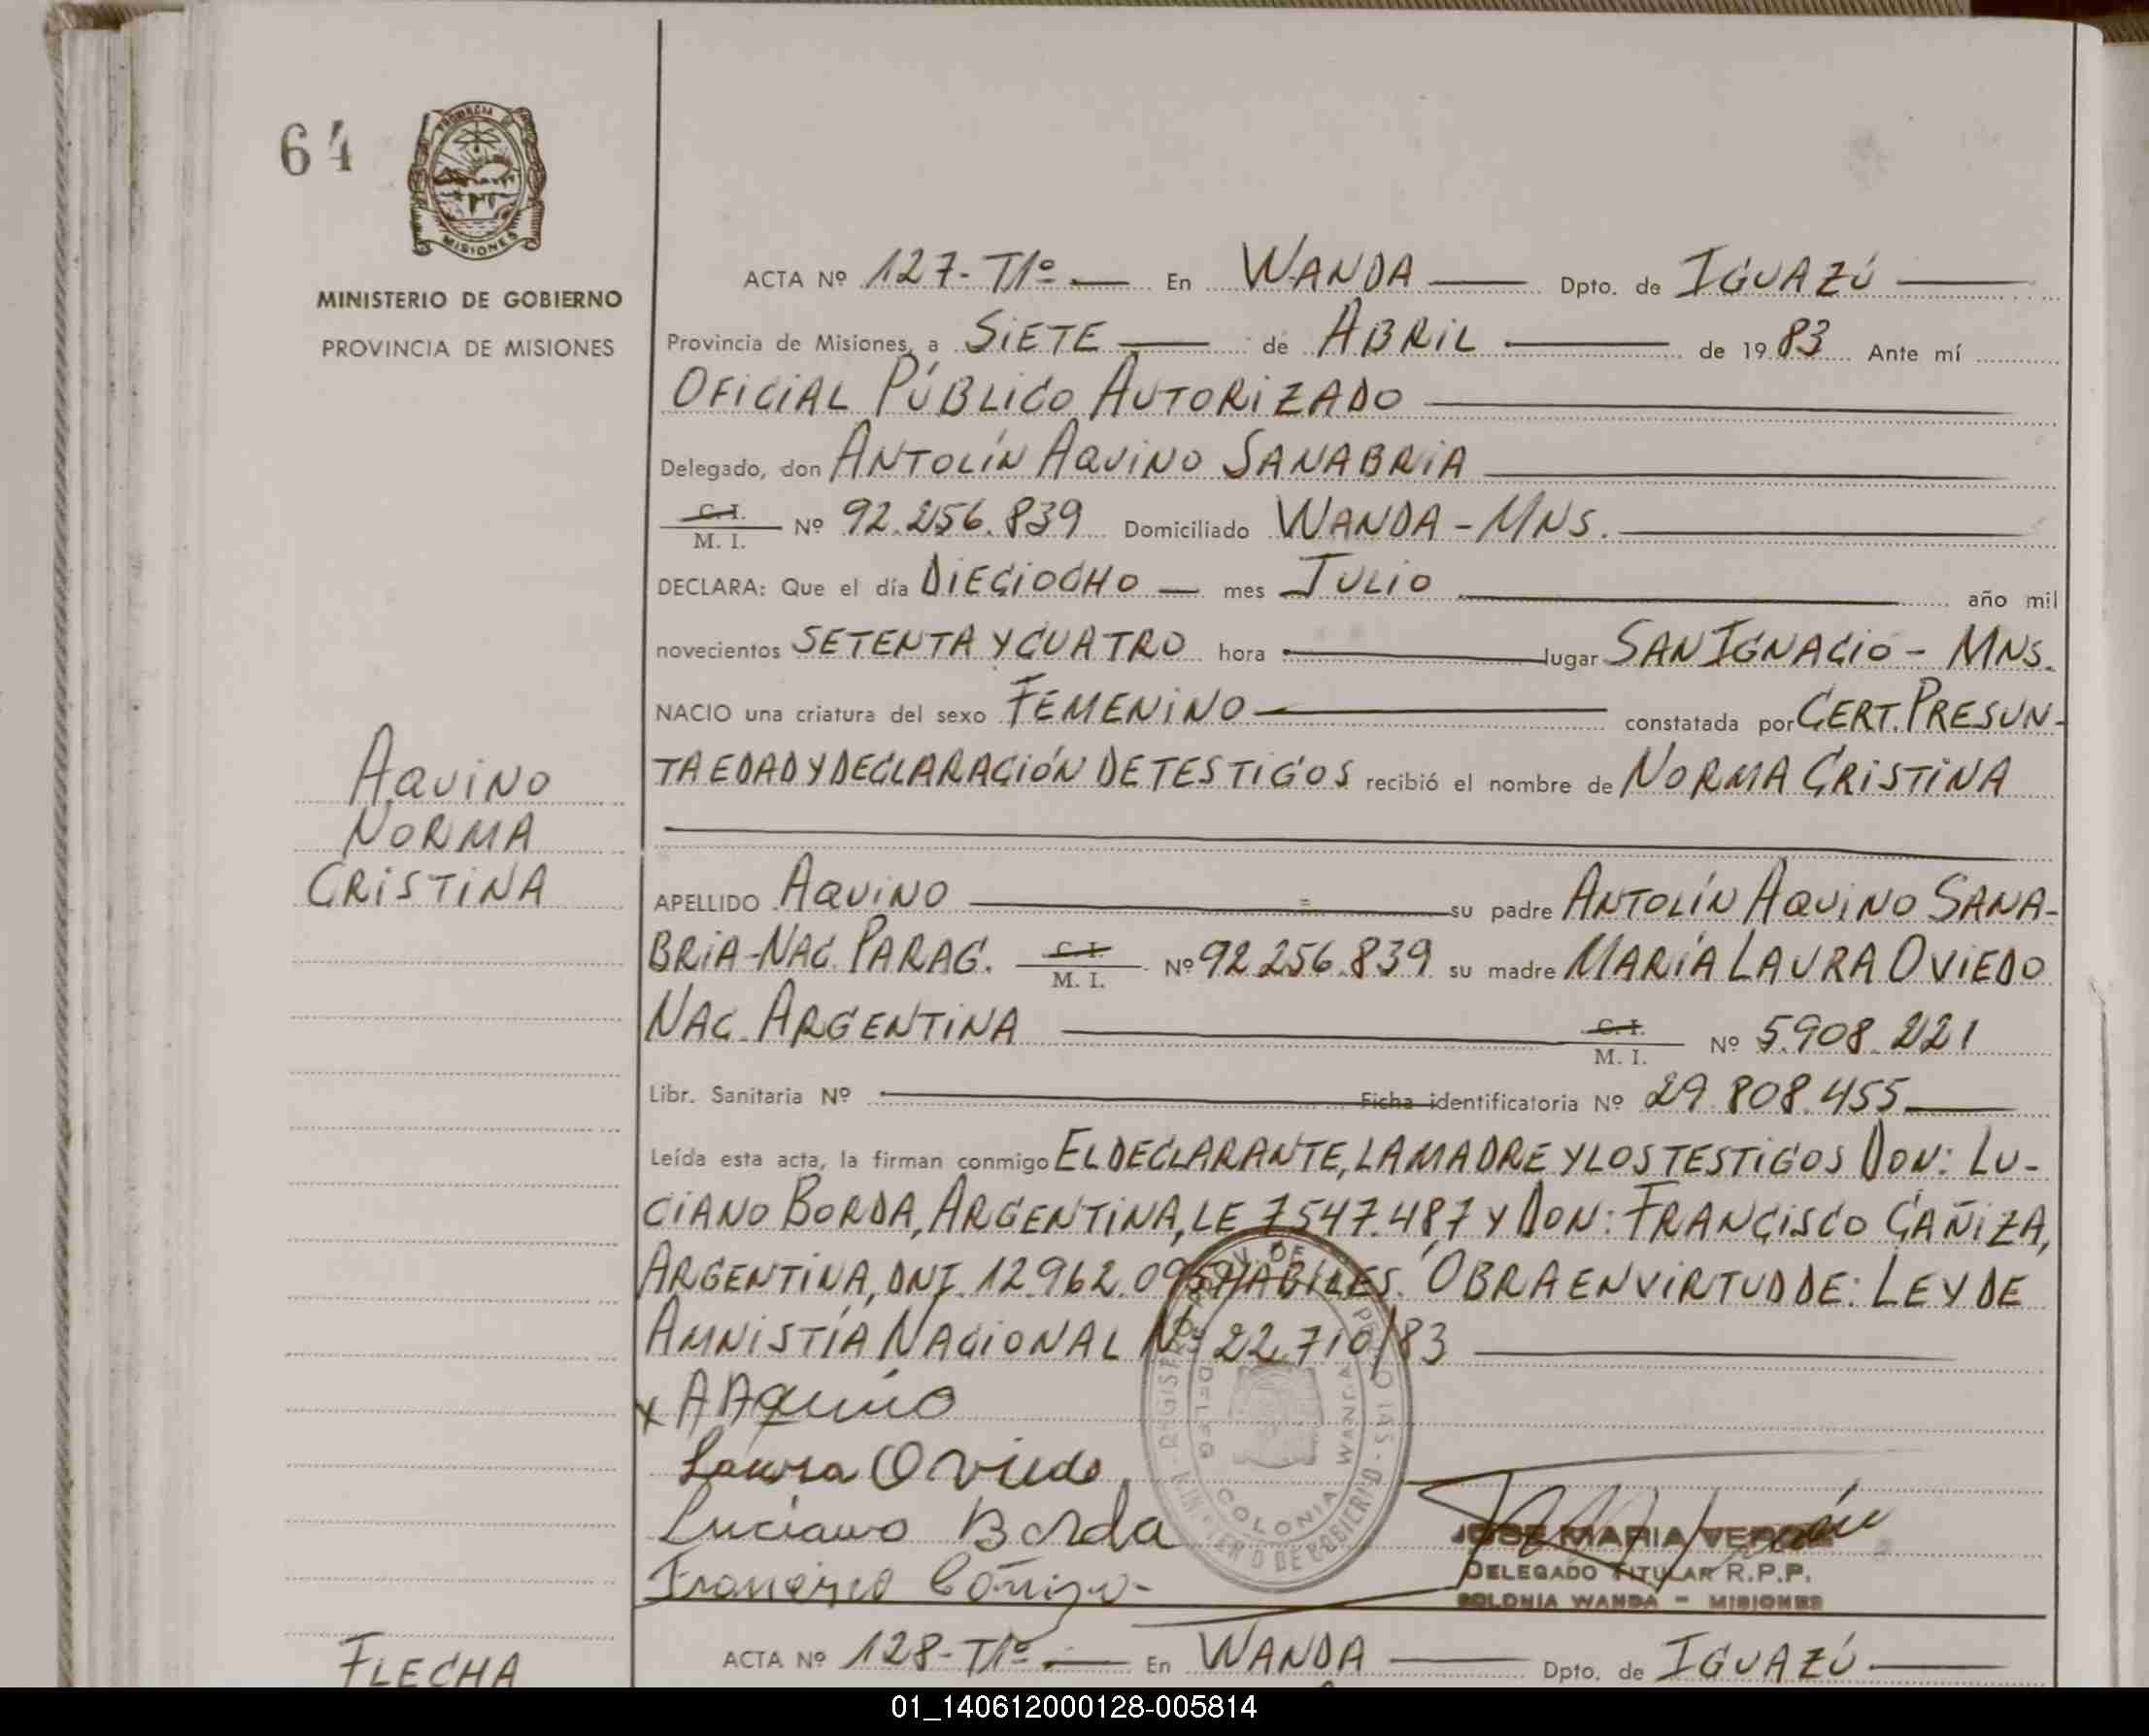 64
PROVINCIA DE
MISIONES
MINISTERIO DE GOBIERNO
PROVINCIA DE MISIONES
ACTA Nº 127-T1º.— En WANDA — Dpto. de IGUAZÚ —
Provincia de Misiones, a SIETE — de ABRIL — de 19 83 Ante mí
OFICIAL PÚBLICO AUTORIZADO —
Delegado, don ANTOLÍN AQUINO SANABRIA —
C. I.
M. I. Nº 92.256.839 Domiciliado WANDA - MNS. —
DECLARA: Que el día DIECIOCHO — mes JULIO — año mil
novecientos SETENTA Y CUATRO hora — lugar SAN IGNACIO - MNS.
NACIO una criatura del sexo FEMENINO — constatada por CERT. PRESUN-
TA EDAD Y DECLARACIÓN DE TESTIGOS recibió el nombre de NORMA CRISTINA
AQUINO
NORMA
CRISTINA
APELLIDO AQUINO — su padre ANTOLÍN AQUINO SANA-
BRIA - NAC. PARAG. C. I.
M. I. Nº 92.256.839 su madre MARÍA LAURA OVIEDO
NAC. ARGENTINA — C. I.
M. I. Nº 5.908.221
Libr. Sanitaria Nº — Ficha identificatoria Nº 29.808.455 —
Leída esta acta, la firman conmigo EL DECLARANTE, LA MADRE Y LOS TESTIGOS DON: LU-
CIANO BORDA, ARGENTINA, LE 7.547.487 Y DON: FRANCISCO CAÑIZA,
ARGENTINA, DNI. 12.962.095 HABILES. OBRA EN VIRTUD DE: LEY DE
AMNISTÍA NACIONAL Nº 22.710/83 —
x AAquino
Laura Oviedo
Luciano Borda
Francisco Cañiza
COLONIA WANDA
JOSE MARIA
DELEGADO TITULAR R.P.P.
COLONIA WANDA - MISIONES
ACTA Nº 128-T1º.— En WANDA — Dpto. de IGUAZÚ —
FLECHA
01_140612000128-005814